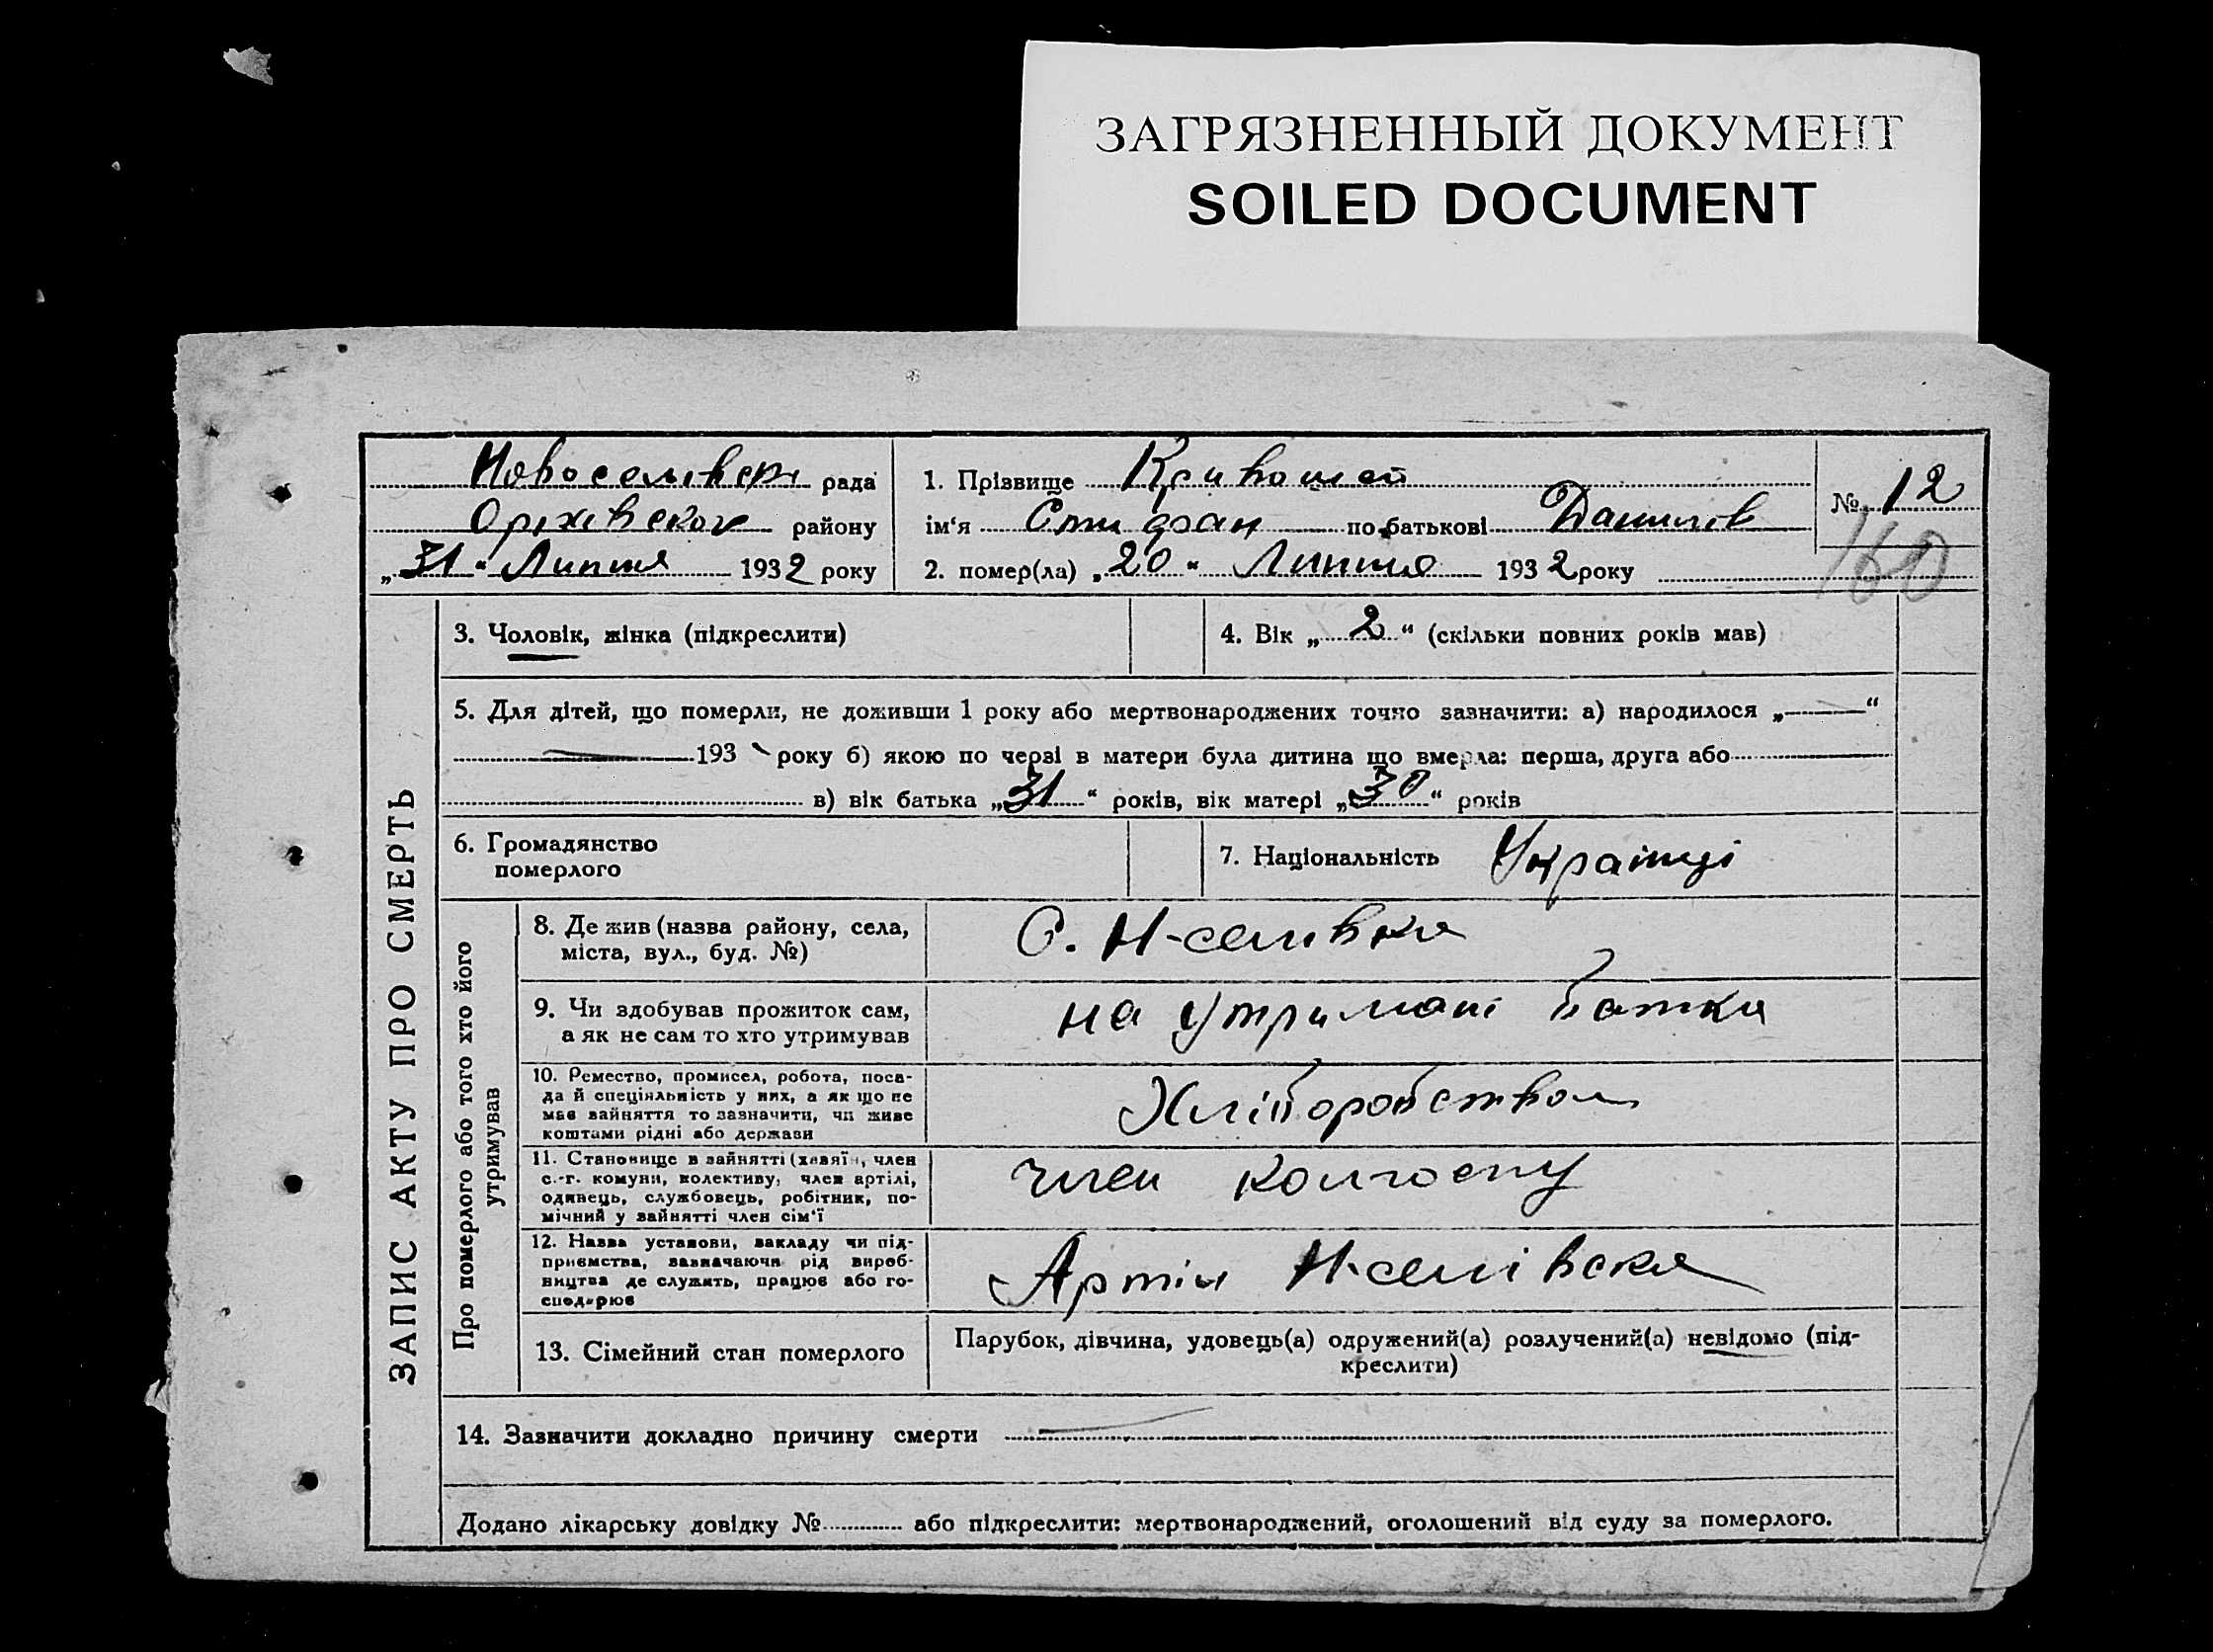 ЗАГРЯЗНЕННЫЙ ДОКУМЕНТ
SOILED DOCUMENT
Новоселівська рада
Оржівськог району
„31“ Липня 1932 року
1. Прізвище Кривошей
ім'я Стифан по батькові Данилов
2. помер(ла) „20“ Липня 1932 року
№ 12
160
ЗАПИС АКТУ ПРО СМЕРТЬ
3. Чоловік, жінка (підкреслити)
4. Вік „2“ (скільки повних років мав)
5. Для дітей, що померли, не доживши 1 року або мертвонароджених точно зазначити: а) народилося „—“
193 року б) якою по черзі в матери була дитина що вмерла: перша, друга або
в) вік батька „31“ років, вік матері „30“ років
6. Громадянство
померлого
7. Національність Українці
Про померлого або того хто його
утримував
8. Де жив (назва району, села,
міста, вул., буд. №)
С. Н-селівка
9. Чи здобував прожиток сам,
а як не сам то хто утримував
на утримані батька
10. Ремество, промисел, робота, поса-
да й спеціяльність у них, а як що не
має зайняття то зазначити, чи живе
коштами рідні або держави
Хліборобством
11. Становище в зайнятті (хазяїн, член
с.-г. комуни, колективу, член артілі,
одинець, службовець, робітник, по-
мічний у зайнятті член сім'ї
член колгоспу
12. Назва установи, закладу чи під-
приємства, зазначаючи рід вироб-
ництва де служить, працює або го-
сподарює
Артіл Н-селівска
13. Сімейний стан померлого
Парубок, дівчина, удовець(а) одружений(а) розлучений(а) невідомо (під-
креслити)
14. Зазначити докладно причину смерти —
Додано лікарську довідку № або підкреслити: мертвонароджений, оголошений від суду за померлого.